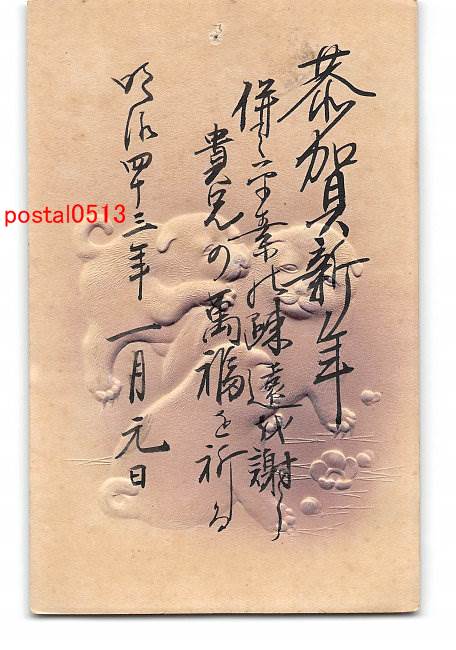 恭賀新年
併シ平素の疎遠を謝し
貴兄の萬福を祈る
明治四十三年 一月元日
postal0513